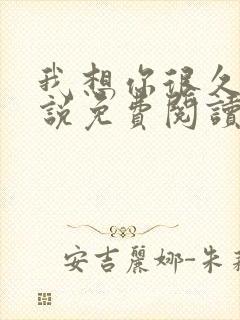 我想你很久
說免費閱讀
安吉麗娜-朱莉